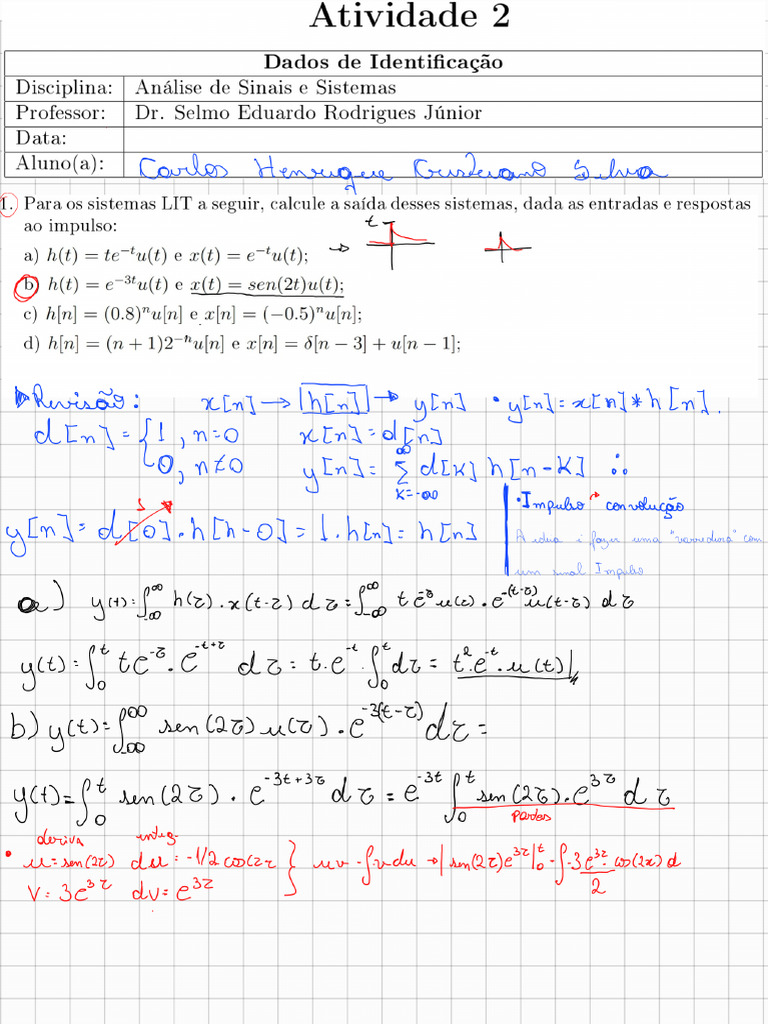 Atividade 2
Dados de Identificação
Disciplina: Análise de Sinais e Sistemas
Professor: Dr. Selmo Eduardo Rodrigues Júnior
Data:
Aluno(a): Carlos Henrique Silva
1. Para os sistemas LIT a seguir, calcule a saída desses sistemas, dada as entradas e respostas
ao impulso:
t
a) h(t) = te^{-t}u(t) e x(t) = e^{-t}u(t); →
b) h(t) = e^{-3t}u(t) e x(t) = sen(2t)u(t);
c) h[n] = (0.8)^n u[n] e x[n] = (-0.5)^n u[n];
d) h[n] = (n + 1)2^{-n}u[n] e x[n] = δ[n − 3] + u[n − 1];
Revisão: x[n] → h[n] → y[n] • y[n] = x[n] * h[n].
d[n] = { 1, n=0 x[n] = d[n]
0, n≠0 y[n] = ∑_{k=-∞}^{∞} d[k] h[n-k] ∴
• Impulso → convolução
y[n] = d[0].h[n-0] = 1.h[n] = h[n]
1
A ideia é fazer uma "varredura" com
um sinal Impulso
a) y(t) = ∫_{-∞}^{∞} h(τ).x(t-τ) dτ = ∫_{-∞}^{∞} t e^{-τ} u(τ).e^{-(t-τ)} u(t-τ) dτ
y(t) = ∫_0^t te^{-τ}.e^{-t+τ} dτ = t.e^{-t}.∫_0^t dτ = t².e^{-t}.u(t)
b) y(t) = ∫_{-∞}^{∞} sen(2τ) u(τ).e^{-3(t-τ)} dτ =
y(t) = ∫_0^t sen(2τ).e^{-3t+3τ} dτ = e^{-3t} ∫_0^t sen(2τ).e^{3τ} dτ
partes
deriva integ.
• u = sen(2τ) du = -1/2 cos(2τ } uv - ∫vdu → | sen(2τ)e^{3τ}|_0^t - ∫-3e^{3τ}/2 . cos(2x) d
v = 3e^{3τ} dv = e^{3τ}